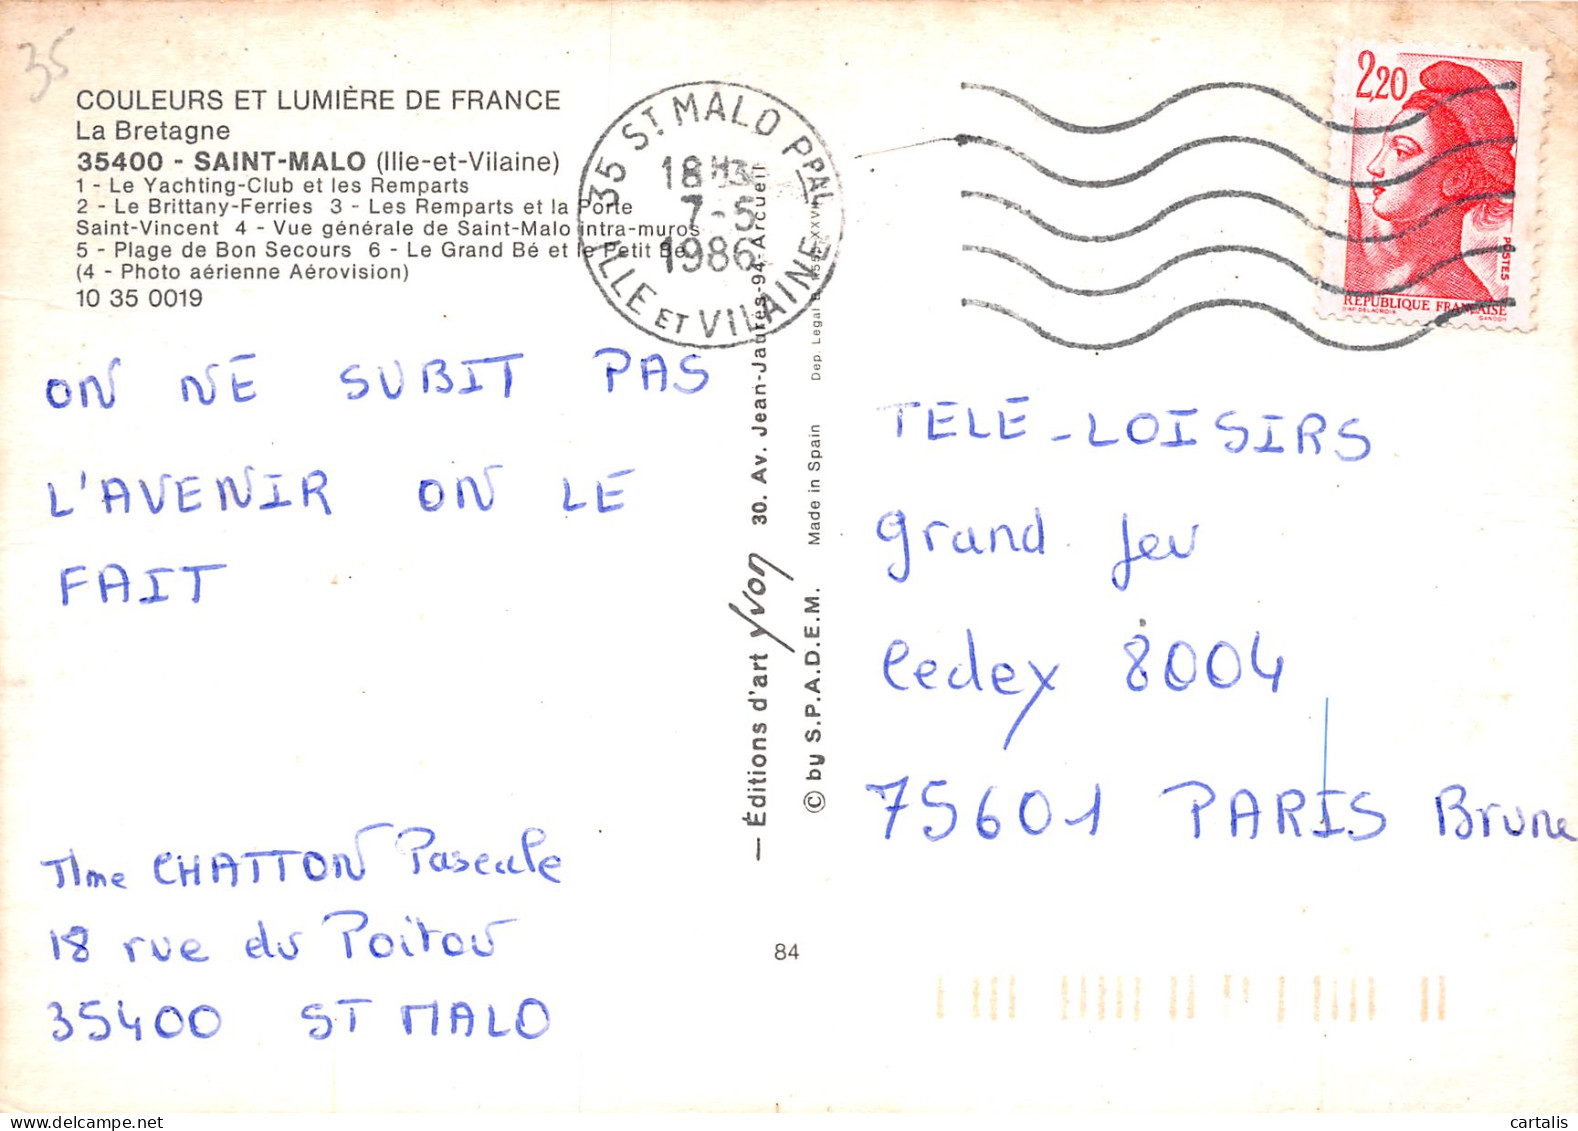 35
COULEURS ET LUMIÈRE DE FRANCE
La Bretagne
35400 - SAINT-MALO (Ille-et-Vilaine)
1 - Le Yachting-Club et les Remparts
2 - Le Brittany-Ferries 3 - Les Remparts et la Porte
Saint-Vincent 4 - Vue générale de Saint-Malo intra-muros
5 - Plage de Bon Secours 6 - Le Grand Bé et le Petit Bé
(4 - Photo aérienne Aérovision)
10 35 0019
35 ST MALO PPAL
18H3
7-5
1986
ILLE ET VILAINE
2,20
POSTES
RÉPUBLIQUE FRANÇAISE
D'AP. DELACROIX GANDON
ON NE SUBIT PAS
L'AVENIR ON LE
FAIT
Mme CHATTON Pascale
18 rue du Poitou
35400 ST MALO
— Éditions d'art Yvon 30. Av. Jean-Jaurès-94-Arcueil
© by S.P.A.D.E.M. Made in Spain Dep. Legal B.
84
TELE-LOISIRS
grand jeu
Cedex 8004
75601 PARIS Brune
cartalis